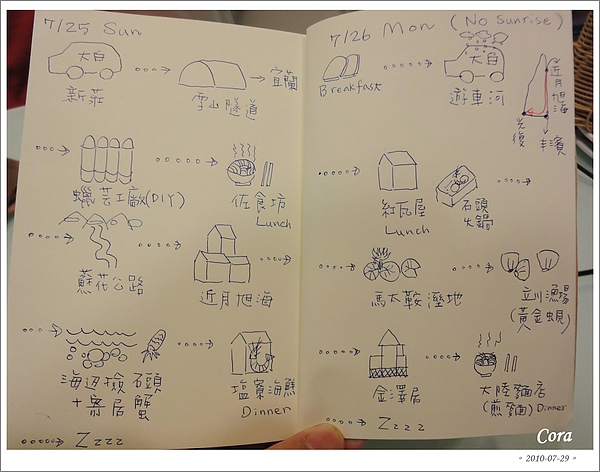 7/25 Sun
大白
新莊
雪山隧道
宜蘭
蠟芸工廠(DIY)
佐食坊
Lunch
蘇花公路
近月旭海
海邊撿石頭
+寄居蟹
塩寮海鱻
Dinner
Zzzz
7/26 Mon (No Sunrise)
Breakfast
大白
遊車河
近月旭海
光復
丰濱
紅瓦屋
Lunch
石頭
火鍋
馬太鞍溼地
立川漁場
(黃金蜆)
金澤居
大陸麵店
(煎麵) Dinner
Zzzz
Cora
2010-07-29